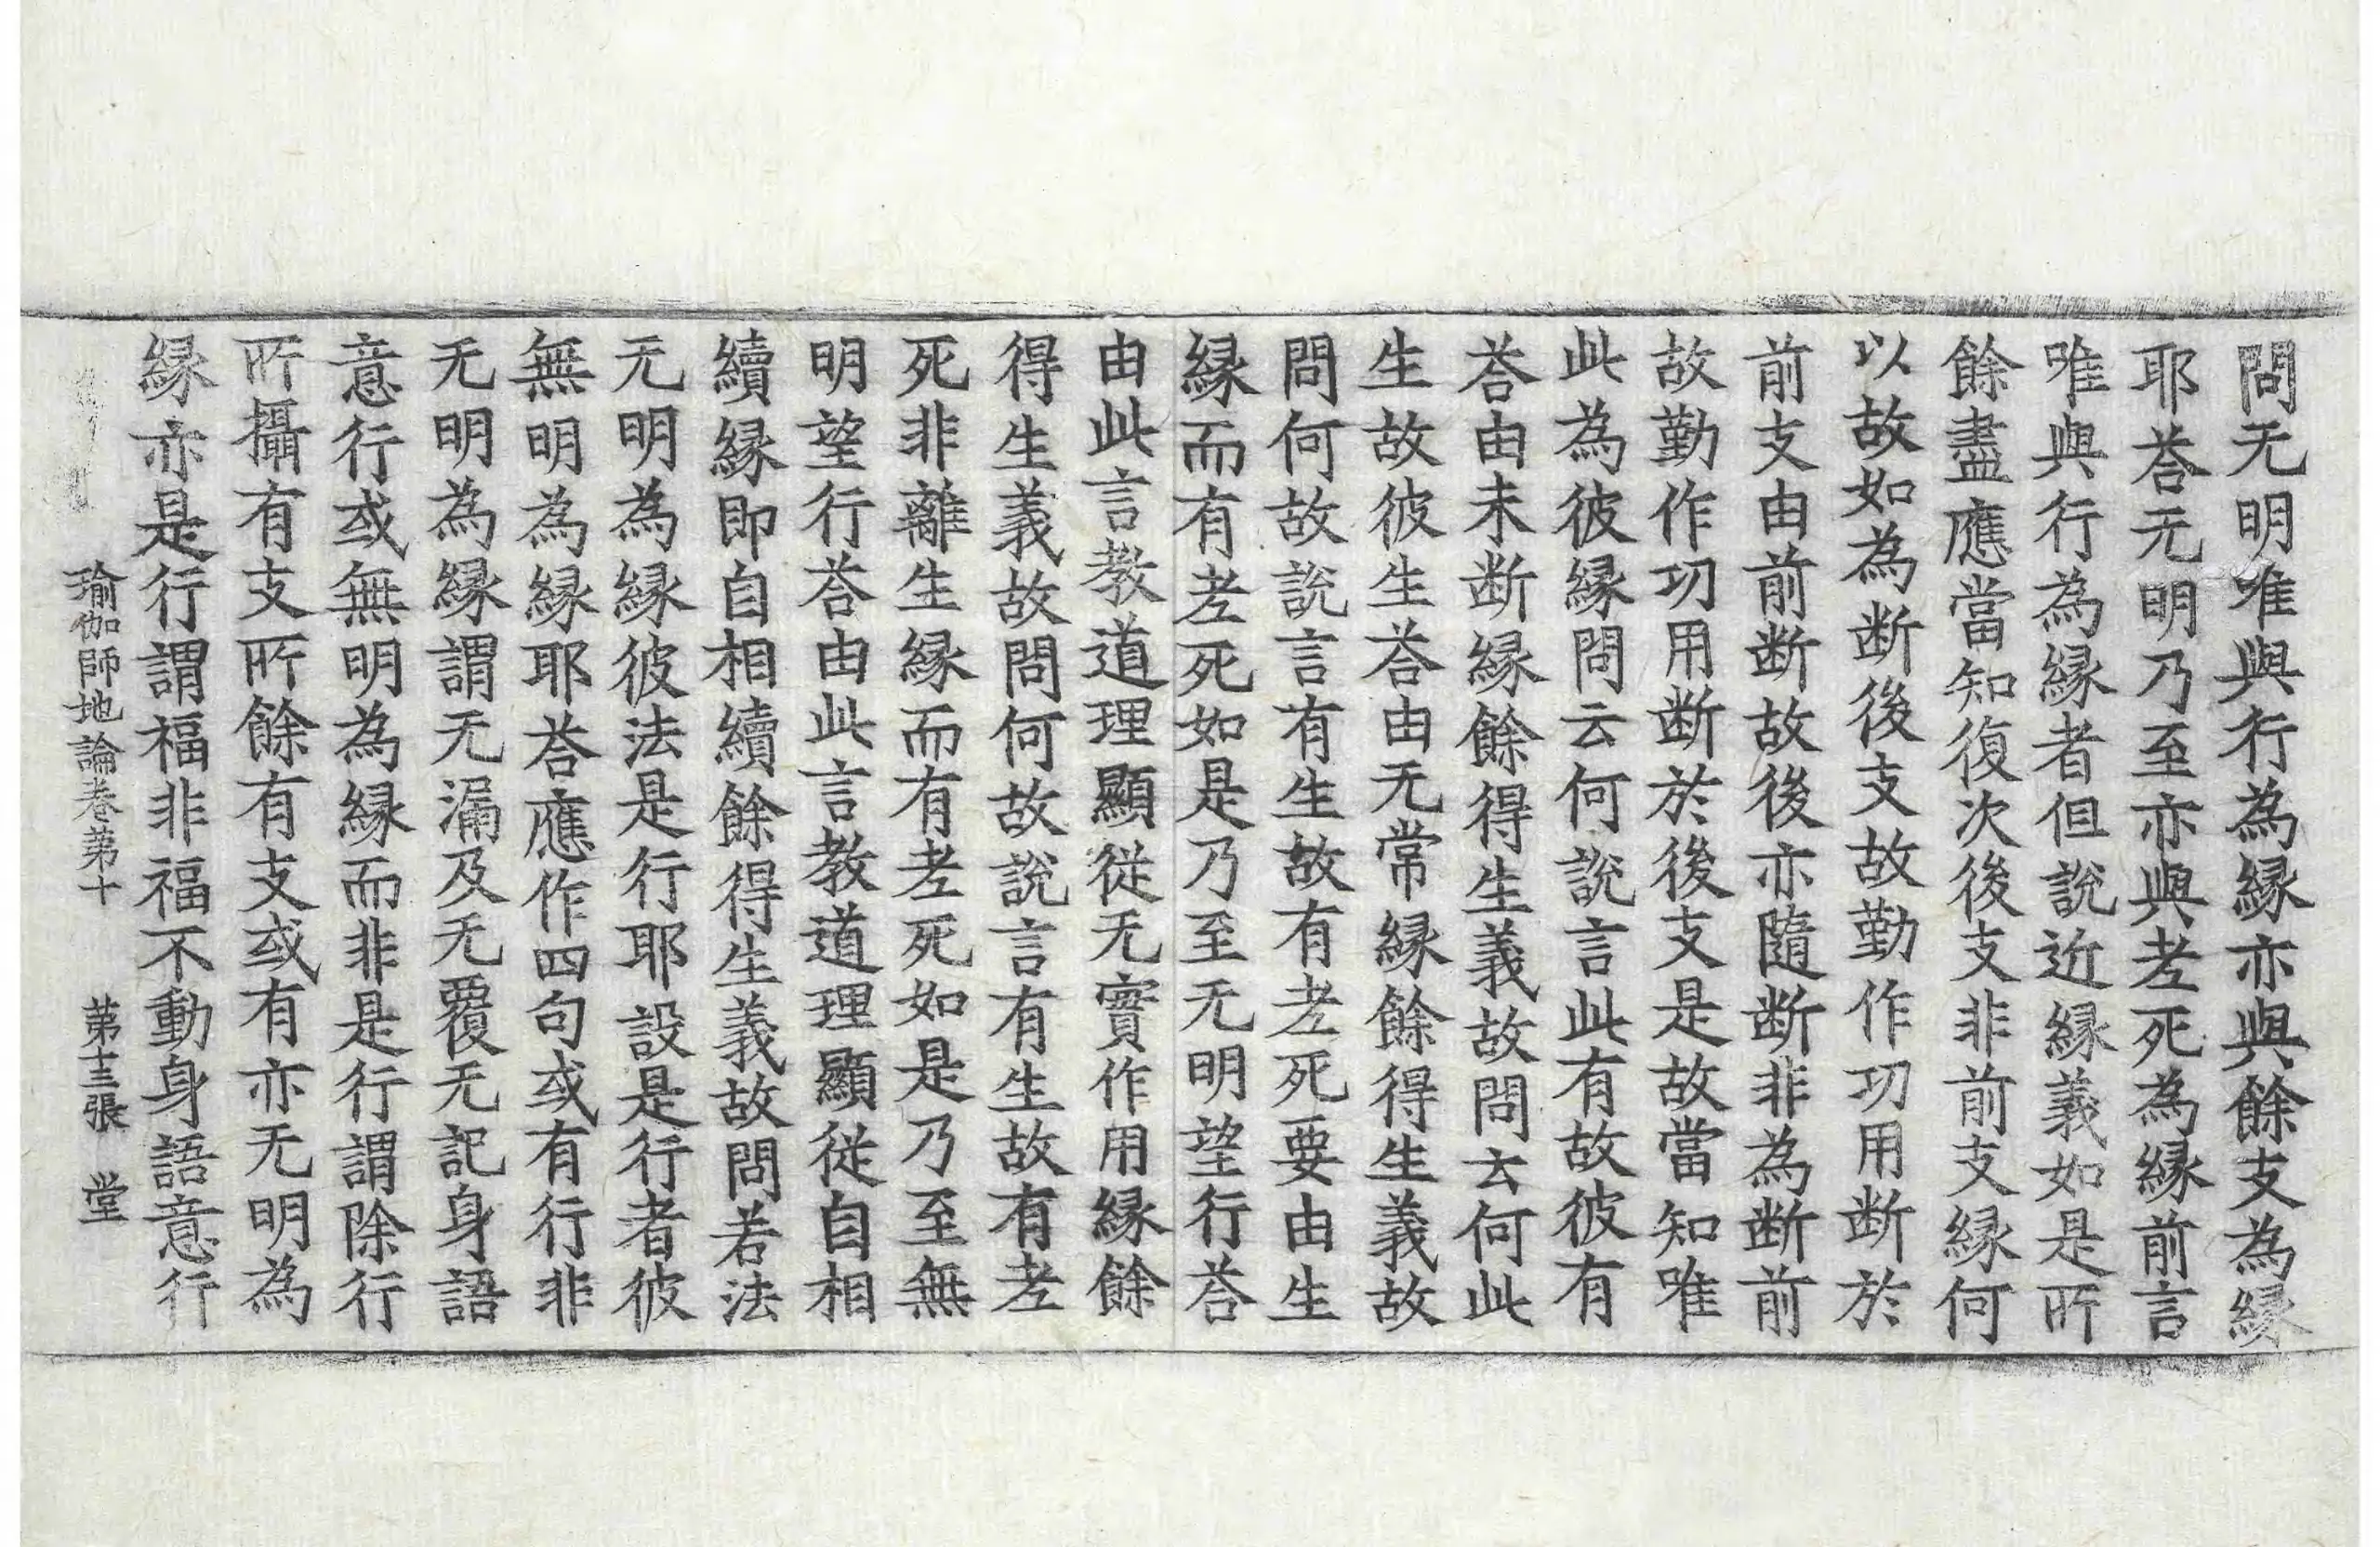 問无明唯與行爲縁亦與餘支爲縁
耶荅无明乃至亦與老死爲縁前言
唯與行爲縁者但說近縁義如是所
餘盡應當知復次後支非前支縁何
以故如爲斷後支故勤作功用斷於
前支由前斷故後亦隨斷非爲斷前
故勤作功用斷於後支是故當知唯
此爲彼縁問云何說言此有故彼有
荅由未斷縁餘得生義故問云何此
生故彼生荅由无常縁餘得生義故
問何故說言有生故有老死要由生
縁而有老死如是乃至无明望行荅
由此言教道理顯從无實作用縁餘
得生義故問何故說言有生故有老
死非離生縁而有老死如是乃至無
明望行荅由此言教道理顯從自相
續縁即自相續餘得生義故問若法
无明爲縁彼法是行耶設是行者彼
無明爲縁耶荅應作四句或有行非
无明爲縁謂无漏及无覆无記身語
意行或無明爲縁而非是行謂除行
所攝有支所餘有支或有亦无明爲
縁亦是行謂福非福不動身語意行
瑜伽師地論卷第十 第十三張 堂